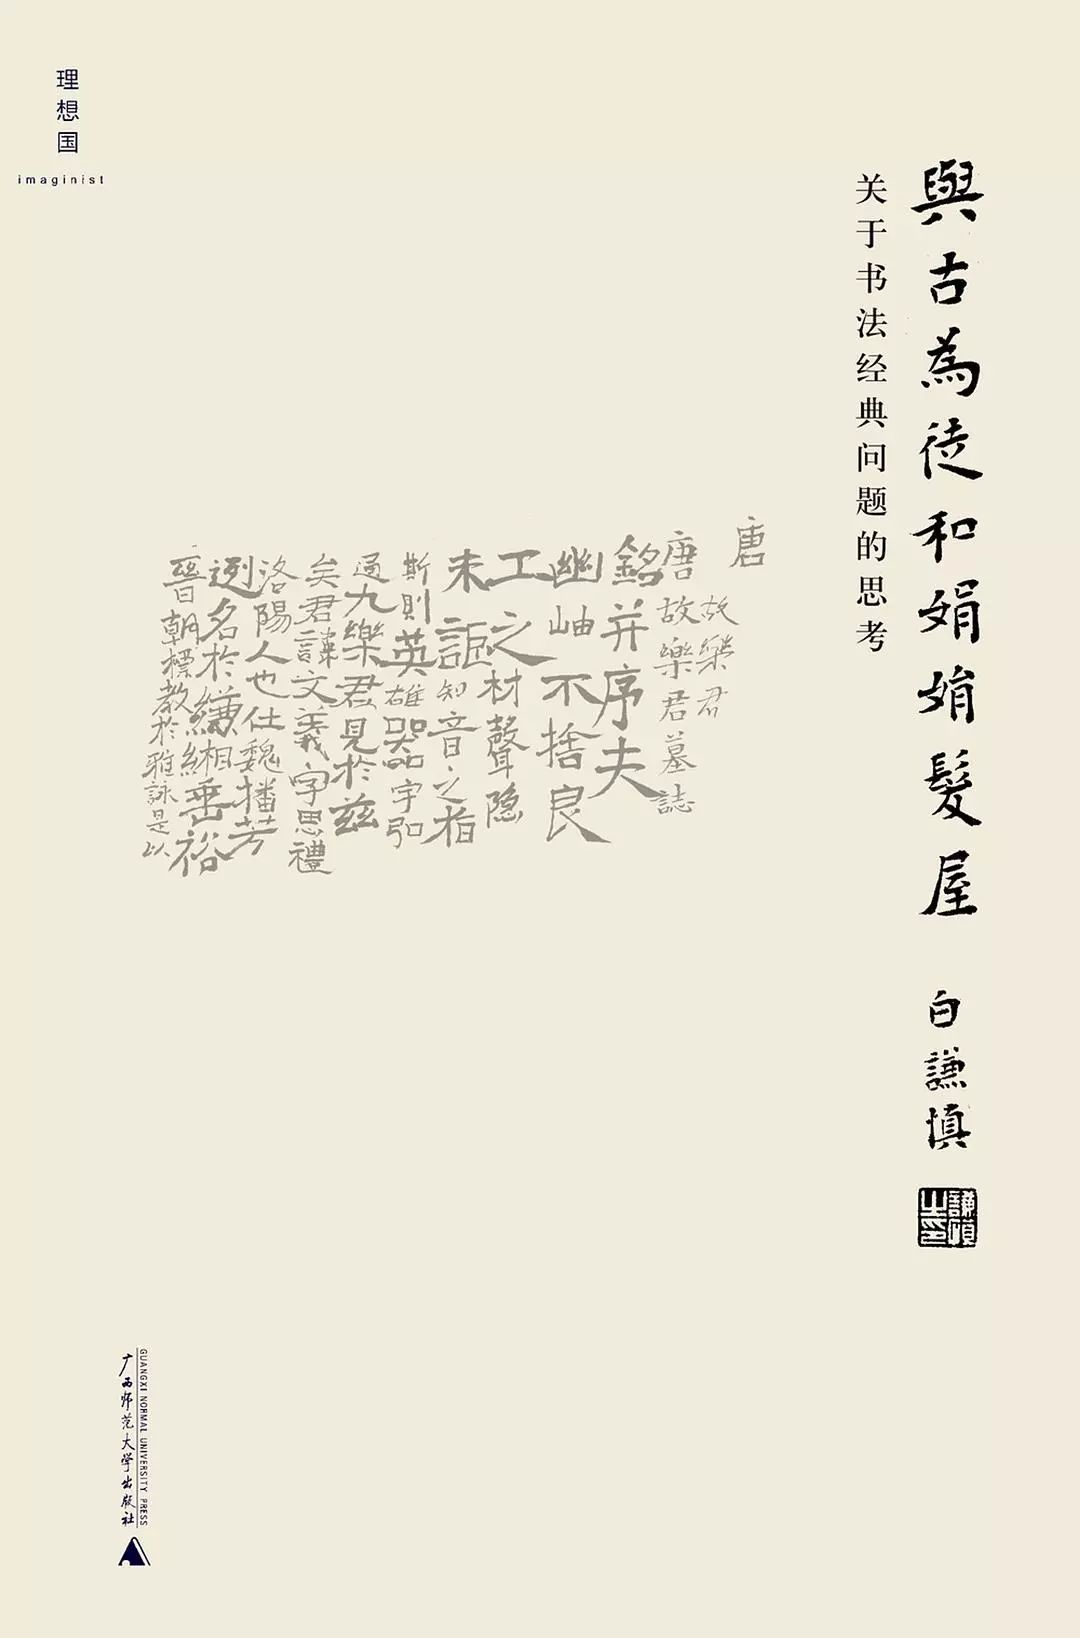 理想国
imaginist
與古為徒和娟娟髮屋
关于书法经典问题的思考
白謙慎
唐
故樂君
唐故樂君墓誌
銘并序夫
幽岫不捨良
工之材聲隐
未詎知音之指
斯則英雄器宇弘
過九樂君見於兹
矣君諱文義字思禮
洛陽人也仕魏播芳
逊名於縑緗垂裕
晉朝標教於雅詠是以
广西师范大学出版社
GUANGXI NORMAL UNIVERSITY PRESS